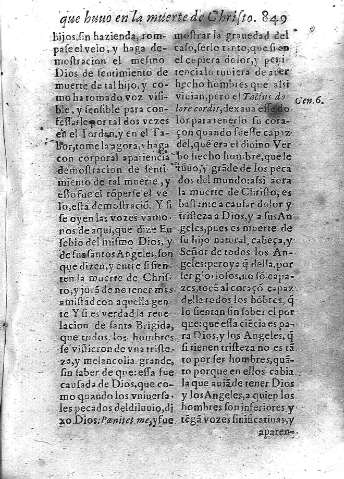 que huuo en la muerte de Christo. 849
hijos, sin hazienda, rom-
pase el velo, y haga de-
mostracion el mesmo
Dios de sentimiento de
muerte de tal hijo, y co-
mo ha tomado voz visi-
ble, y sensible para con-
fessarle por tal dos vezes
en el Iordan, y en el Ta-
bor, tome la agora, y haga
con corporal apariencia
demostracion de senti-
miento de tal muerte, y
esso fue el rõperse el ve-
lo, esta demostraciõ. Y si
se oyen las vozes vamo-
nos de aqui, que dize Eu-
sebio del mismo Dios, y
de sus santos Angeles, son
que dizen, y entre si sien-
ten la muerte de Chris-
to, y jurã de no tener mas
amistad con aquella gen-
te Y si es verdad la reue-
lacion de santa Brigida,
que todos los hombres
se vistieron de vna triste-
za, y melancolia grande,
sin saber de que: essa fue
causada de Dios, que co-
mo quando los vniuersa-
les pecados del diluuio, di
xo Dios: Pœnitet me, y fue
mostrar la grauedad del
caso, ser lo tanto, que si en
el cupiera dolor, y peni-
tencia lo tuuiera de auer
hecho hombres que assi
viuian, pero el Tactus do-
lore cordis, dexaua esse do
lor para tenerlo su cora-
çon quando fuesse capaz
del, que era el diuino Ver
bo hecho hombre, que le
tuuo, y grãde de los peca
dos del mundo: assi aora
la muerte de Christo, es
bastante a causar dolor y
tristeza a Dios, y a sus An-
geles, pues es muerte de
su hijo natural, cabeça, y
Señor de todos los An-
geles: pero ya q̃ dessa, por
ser gloriosos, no so capa-
zes, tocã al coraçõ capaz
della todos los hõbres, q̃
lo sientan sin saber el por
que: que essa ciẽcia es pa-
ra Dios, y los Angeles, q̃
si tienen tristeza no es tã
to por ser hombres, quã-
to porque en ellos cabia
la que auiã de tener Dios
y los Angeles, a quien los
hombres son inferiores, y
tẽgã vozes sinificatiuas, y
aparen-
Gen. 6.